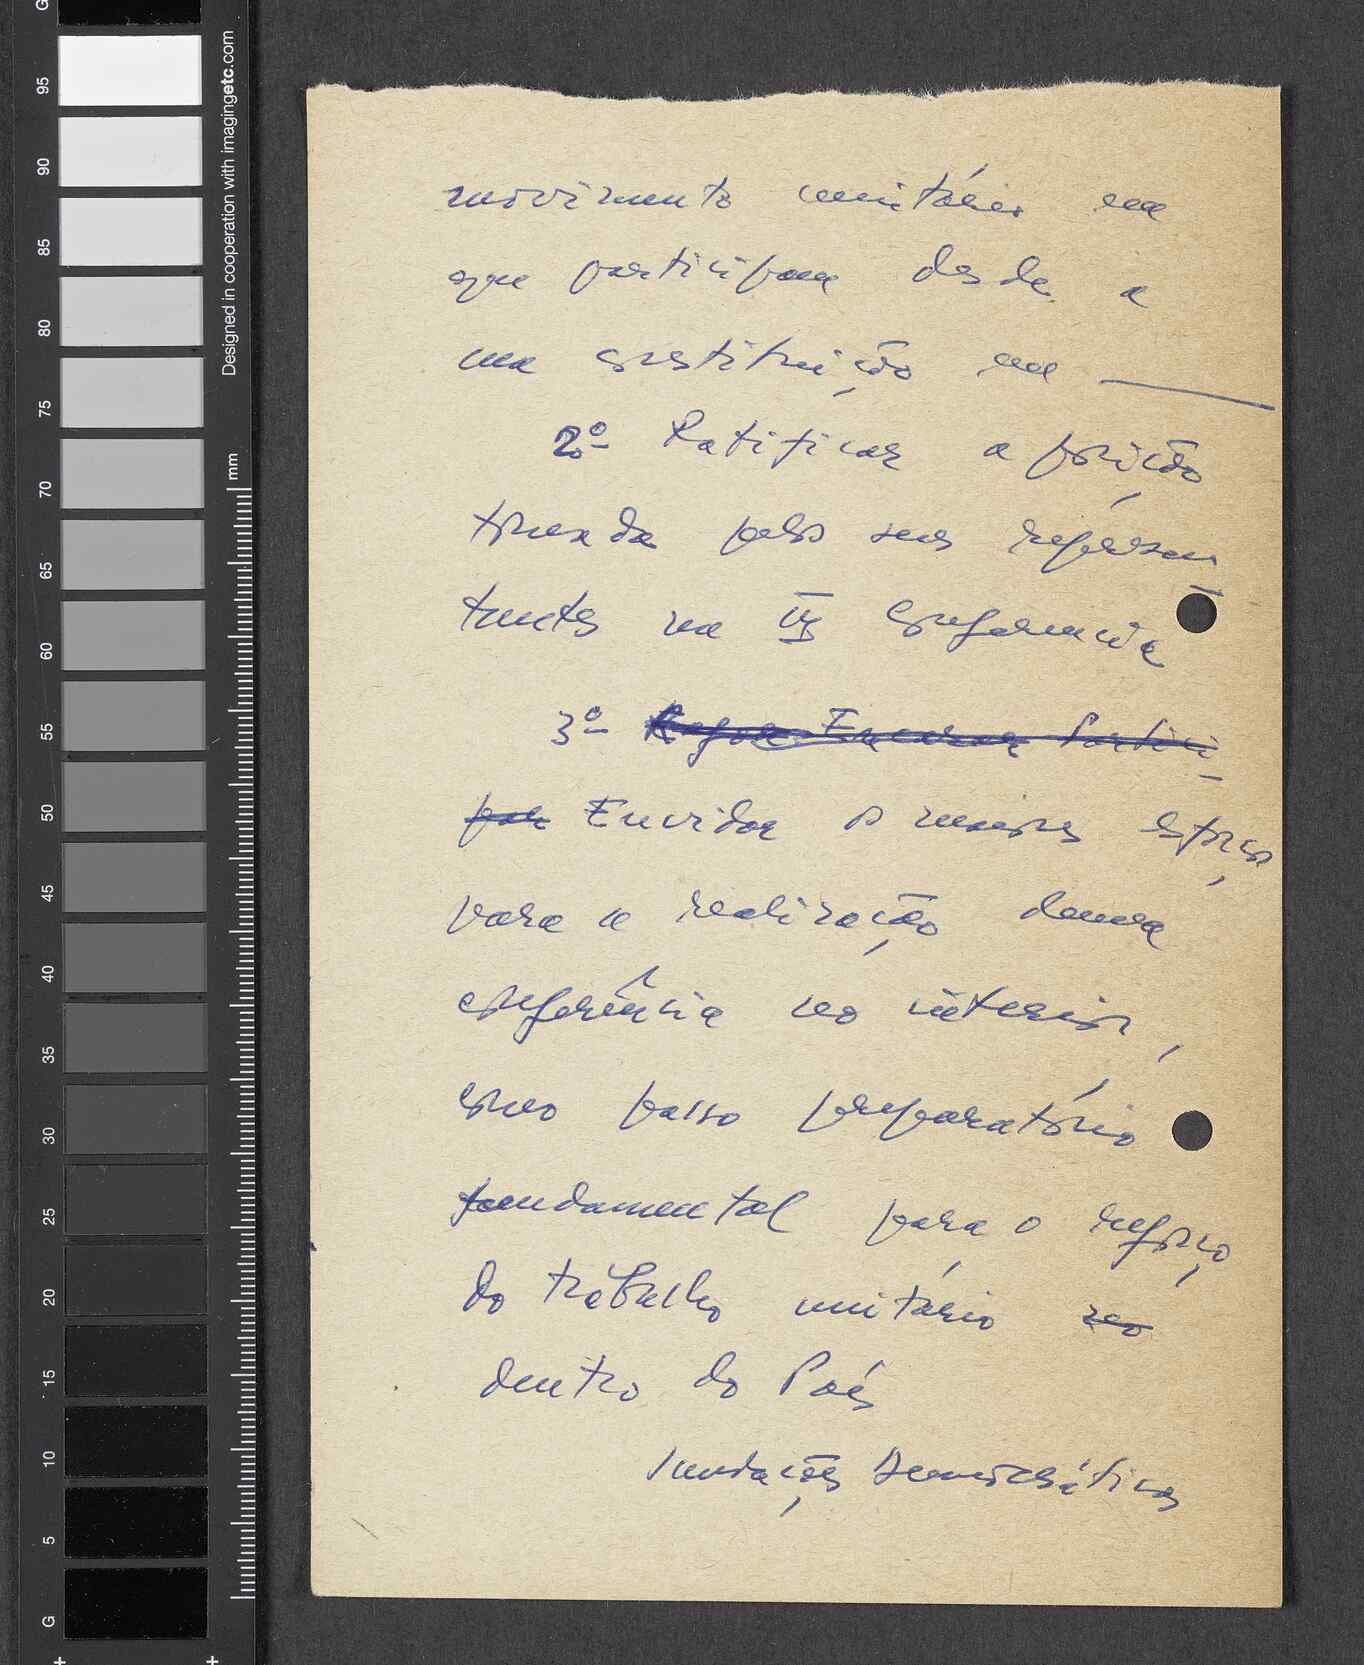 movimento unitário em
que participam desde a
sua constituição em ____
2º Ratificar a posição
tomada pelos seus represen
tantes na III conferencia
3º Partici-
par Envidar os maiores esforços
para a realização duma
conferência no interior,
como passo preparatório
fundamental para o reforço
do trabalho unitário no
dentro do País
Saudações Democráticas
G
95
90
85
80
75
70
65
60
55
50
45
40
35
30
25
20
15
10
5
G
mm
Designed in cooperation with imagingetc.com